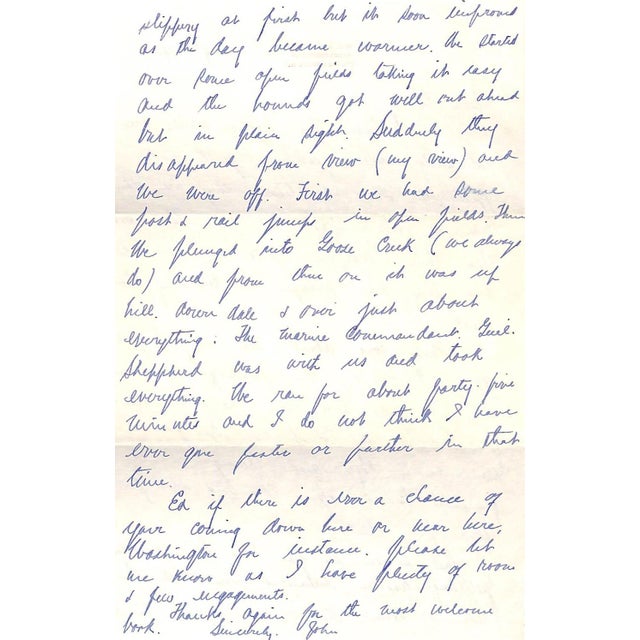 slippery at first but it soon improved
as the day became warmer. We started
over some open fields taking it easy
and the hounds got well out ahead
but in plain sight. Suddenly they
disappeared from view (my view) and
We were off. First we had some
post & rail jumps in open fields. Then
We plunged into Goose Creek (we always
do) and from then on it was up
hill. down dale & over just about
everything. The marine commandant. Genl.
Sheppherd was with us and took
everything. We ran for about forty-five
minutes and I do not think I have
ever gone faster or further in that
time.
Ed if there is ever a chance of
your coming down here or near here,
Washington for instance. please let
me know as I have plenty of room
& few engagements.
Thanks again for the most welcome
book. Sincerely. John